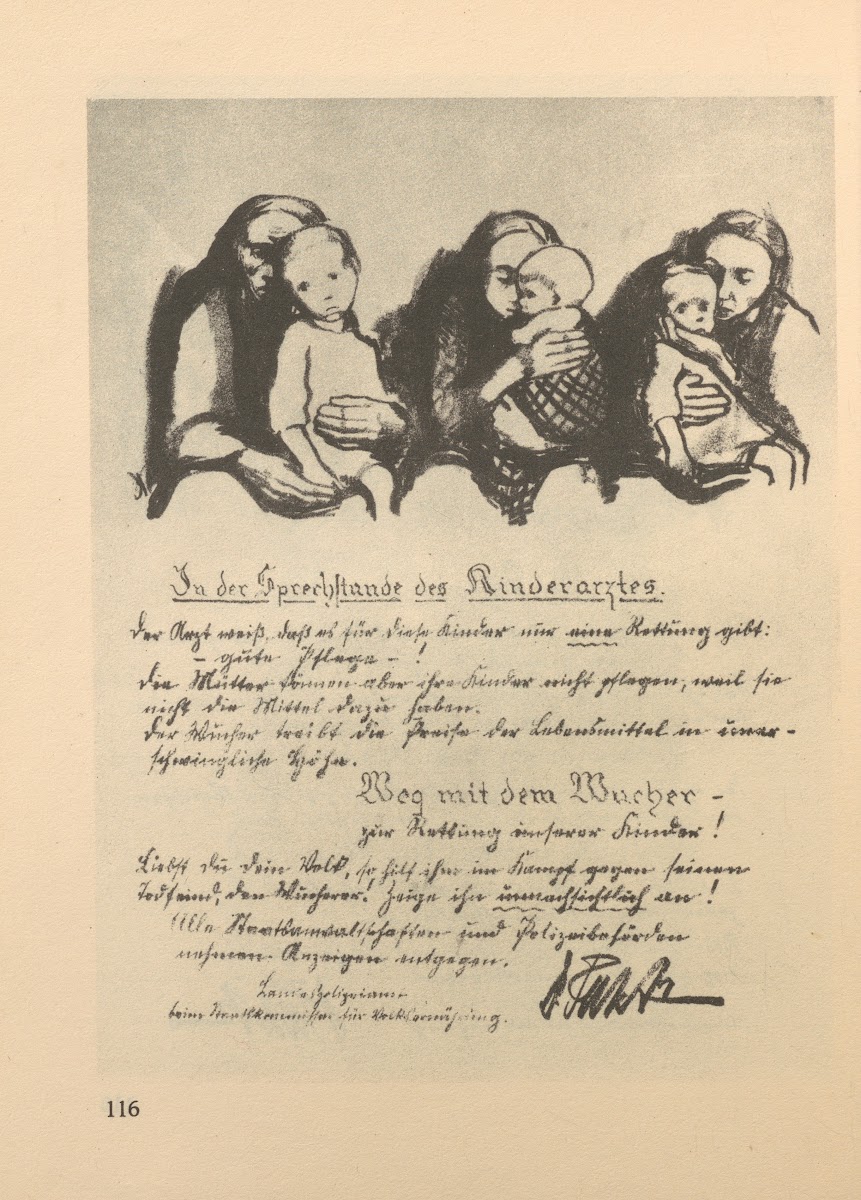 In der Sprechstunde des Kinderarztes.
Der Arzt weiß, daß es für diese Kinder nur eine Rettung gibt:
– gute Pflege – !
Die Mütter können aber ihre Kinder nicht pflegen, weil sie
nicht die Mittel dazu haben.
Der Wucher treibt die Preise der Lebensmittel in uner-
schwingliche Höhe.
Weg mit dem Wucher –
zur Rettung unserer Kinder!
Liebst du dein Volk, so hilf ihm im Kampf gegen seinen
Todfeind, den Wucherer! Zeige ihn unnachsichtlich an!
Alle Staatsanwaltschaften und Polizeibehörden
nehmen Anzeigen entgegen.
Landespolizeiamt
beim Staatskommissar für Volksernährung.
116